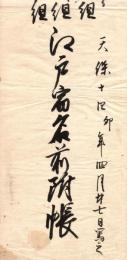 組
組
組
天保十四卯年四月廿七日寫之
江戸宿名前附帳